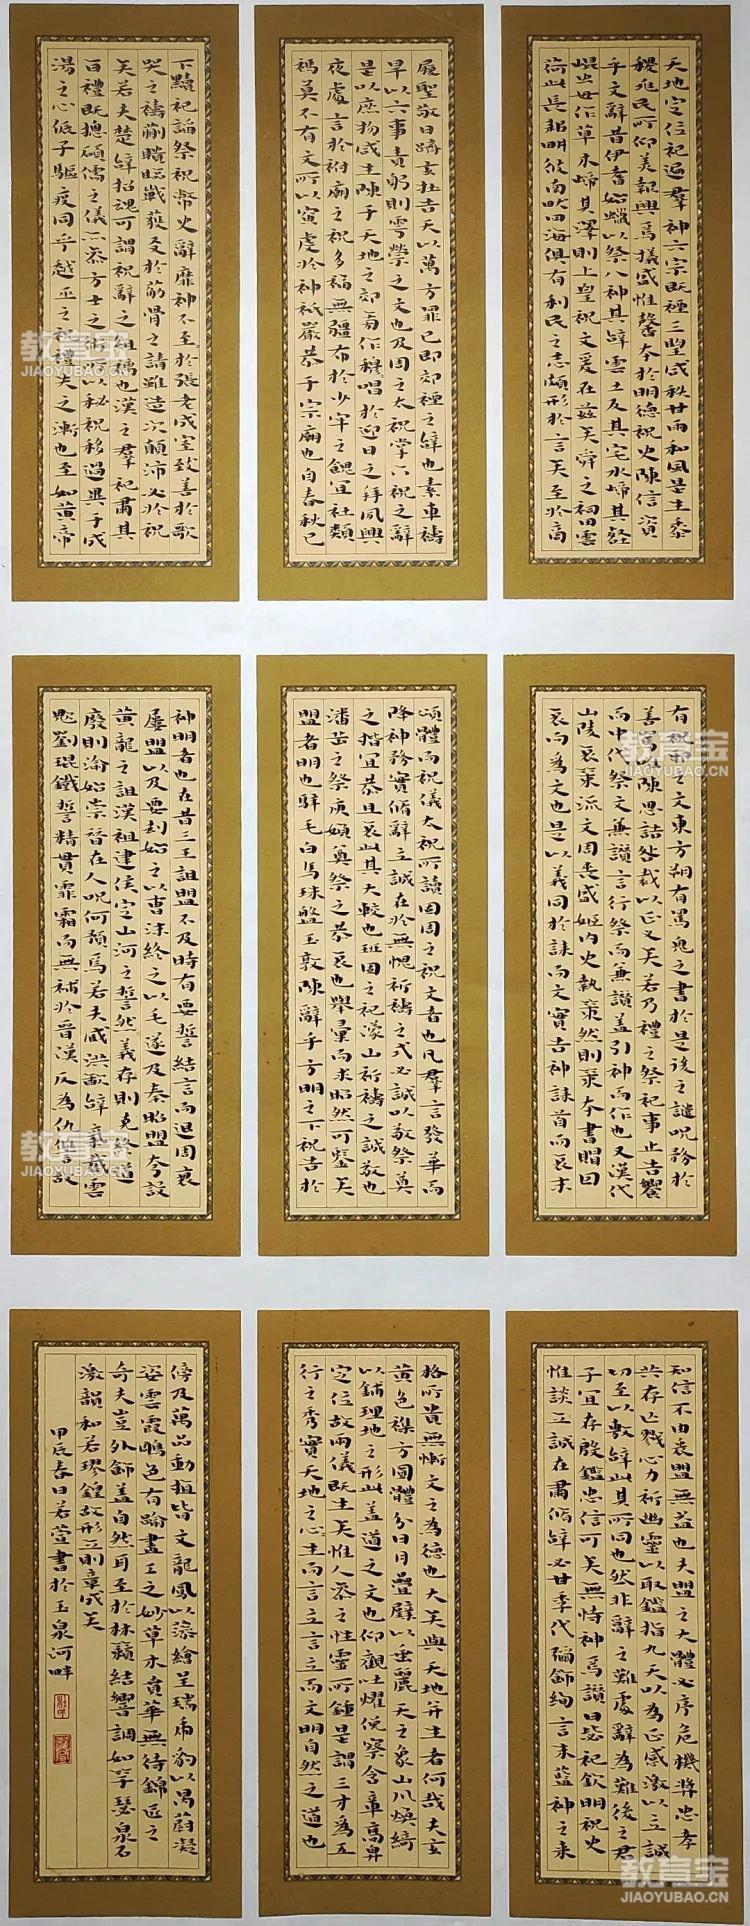 天地定位祀遍群神六宗既禋三望咸秩甘雨和風是生黍
稷兆民所仰美報興焉犧盛惟馨本於明德祝史陳信資
乎文辭昔伊耆始蠟以祭八神其辭雲土反其宅水歸其壑
昆蟲毋作草木歸其澤則上皇祝文爰在茲矣舜之祠田雲
荷此長耜耕彼南畝四海俱有利民之志頗形於言矣至於商
履聖敬日躋玄牡告天以萬方罪己即郊禋之辭也素車禱
旱以六事責躬則雩禜之文也及周之太祝掌六祝之辭
是以庶物咸生陳于天地之郊旁作穆唱於迎日之拜夙興
夜處言於祔廟之祝多福無疆布於少牢之饋宜社類
禡莫不有文所以寅虔於神祇嚴恭于宗廟也自春秋已
下黷祀諂祭祝幣史辭靡神不至於張老成室致善於歌
哭之禱蒯聵臨戰獲佑於筋骨之請雖造次顛沛必於祝
矣若夫楚辭招魂可謂祝辭之組纚也漢之群祀肅其
百禮既總碩儒之儀亦參方士之術所以秘祝移過異于成
湯之心侲子驅疫同乎越巫之祝禮失之漸也至如黃帝
有祝邪之文東方朔有罵鬼之書於是後之譴呪務於
善罵以陳思詰咎裁以正義矣若乃禮之祭祀事止告饗
而中代祭文兼讚言行祭而兼讚蓋引神而作也又漢代
山陵哀策流文周喪盛姬內史執策然則策本書贈因
哀而為文也是以義同於誄而文實告神誄首而哀末
頌體而祝儀太祝所讀固周之祝文者也凡群言發華而
降神務實脩辭立誠在於無愧祈禱之式必誠以敬祭奠
之楷宜恭且哀此其大較也班固之祀濛山祈禱之誠敬也
潘岳之祭庾婦奠祭之恭哀也舉彙而求昭然可鑒矣
盟者明也騂毛白馬珠盤玉敦陳辭乎方明之下祝告於
神明者也在昔三王詛盟不及時有要誓結言而退周衰
屢盟以及要劫始之以曹沫終之以毛遂及秦昭盟夷設
黃龍之詛漢祖建侯定山河之誓然義存則克終道
廢則渝始崇替在人呪何預焉若夫臧洪歃辭氣截雲
蜺劉琨鐵誓精貫霏霜而無補於晉漢反為仇讎故
知信不由衷盟無益也夫盟之大體必序危機獎忠孝
共存亡戮心力祈幽靈以取鑑指九天以為正感激以立誠
切至以敷辭此其所同也然非辭之難處辭為難後之君
子宜存殷鑑忠信可矣無恃神焉讚曰毖祀欽明祝史
惟談立誠在肅脩辭必甘季代彌飾絢言朱藍神之來
格所貴無慚文之為德也大矣與天地并生者何哉夫玄
黃色雜方圓體分日月疊璧以垂麗天之象山川煥綺
以鋪理地之形此蓋道之文也仰觀吐曜俯察含章高卑
定位故兩儀既生矣惟人參之性靈所鍾是謂三才為五
行之秀實天地之心生而言立言立而文明自然之道也
傍及萬品動植皆文龍鳳以藻繪呈瑞虎豹以炳蔚凝
姿雲霞雕色有踰畫工之妙草木賁華無待錦匠之
奇夫豈外飾蓋自然耳至於林籟結響調如竽瑟泉石
激韻和若球鍠故形立則章成矣
甲辰春日若萱書於玉泉河畔
教育宝
JIAOYUBAO.CN
教育宝
JIAOYUBAO.CN
教育宝
JIAOYUBAO.CN
教育宝
JIAOYUBAO.CN